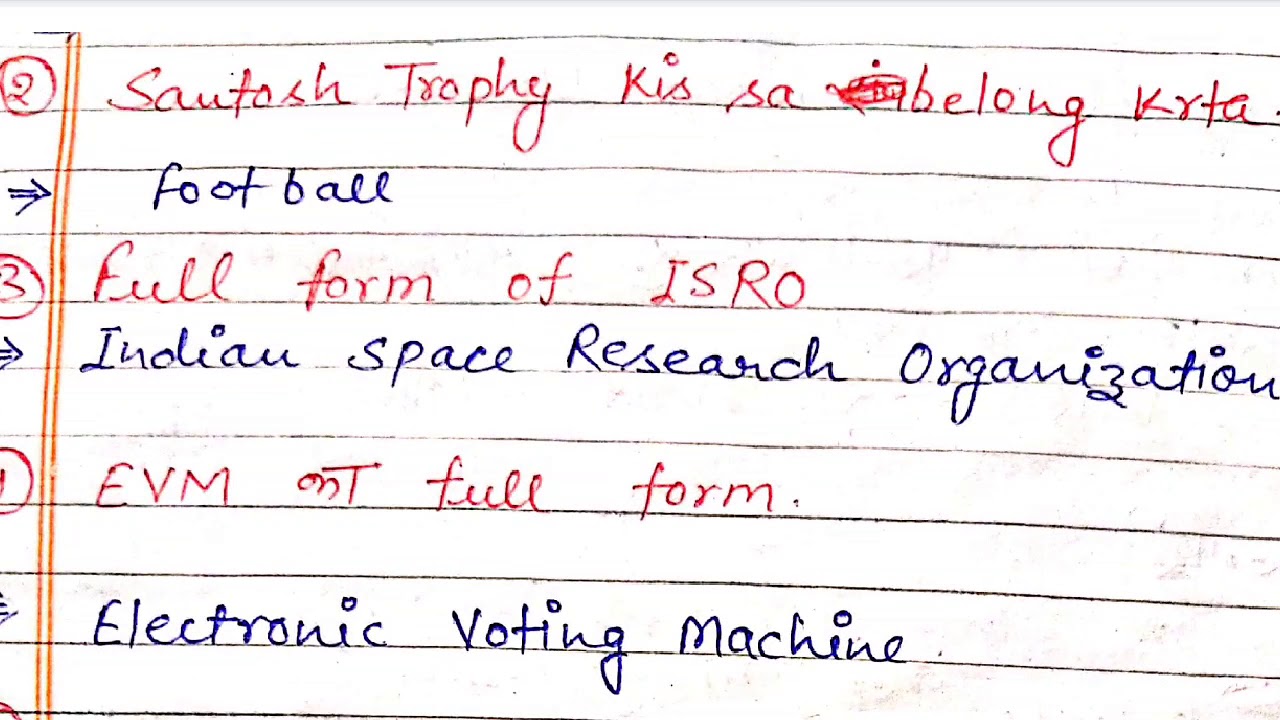 ② Santosh Trophy Kis sa belong Krta.
⇒ football
③ Full form of ISRO
⇒ Indian Space Research Organization
EVM का full form.
⇒ Electronic Voting Machine.